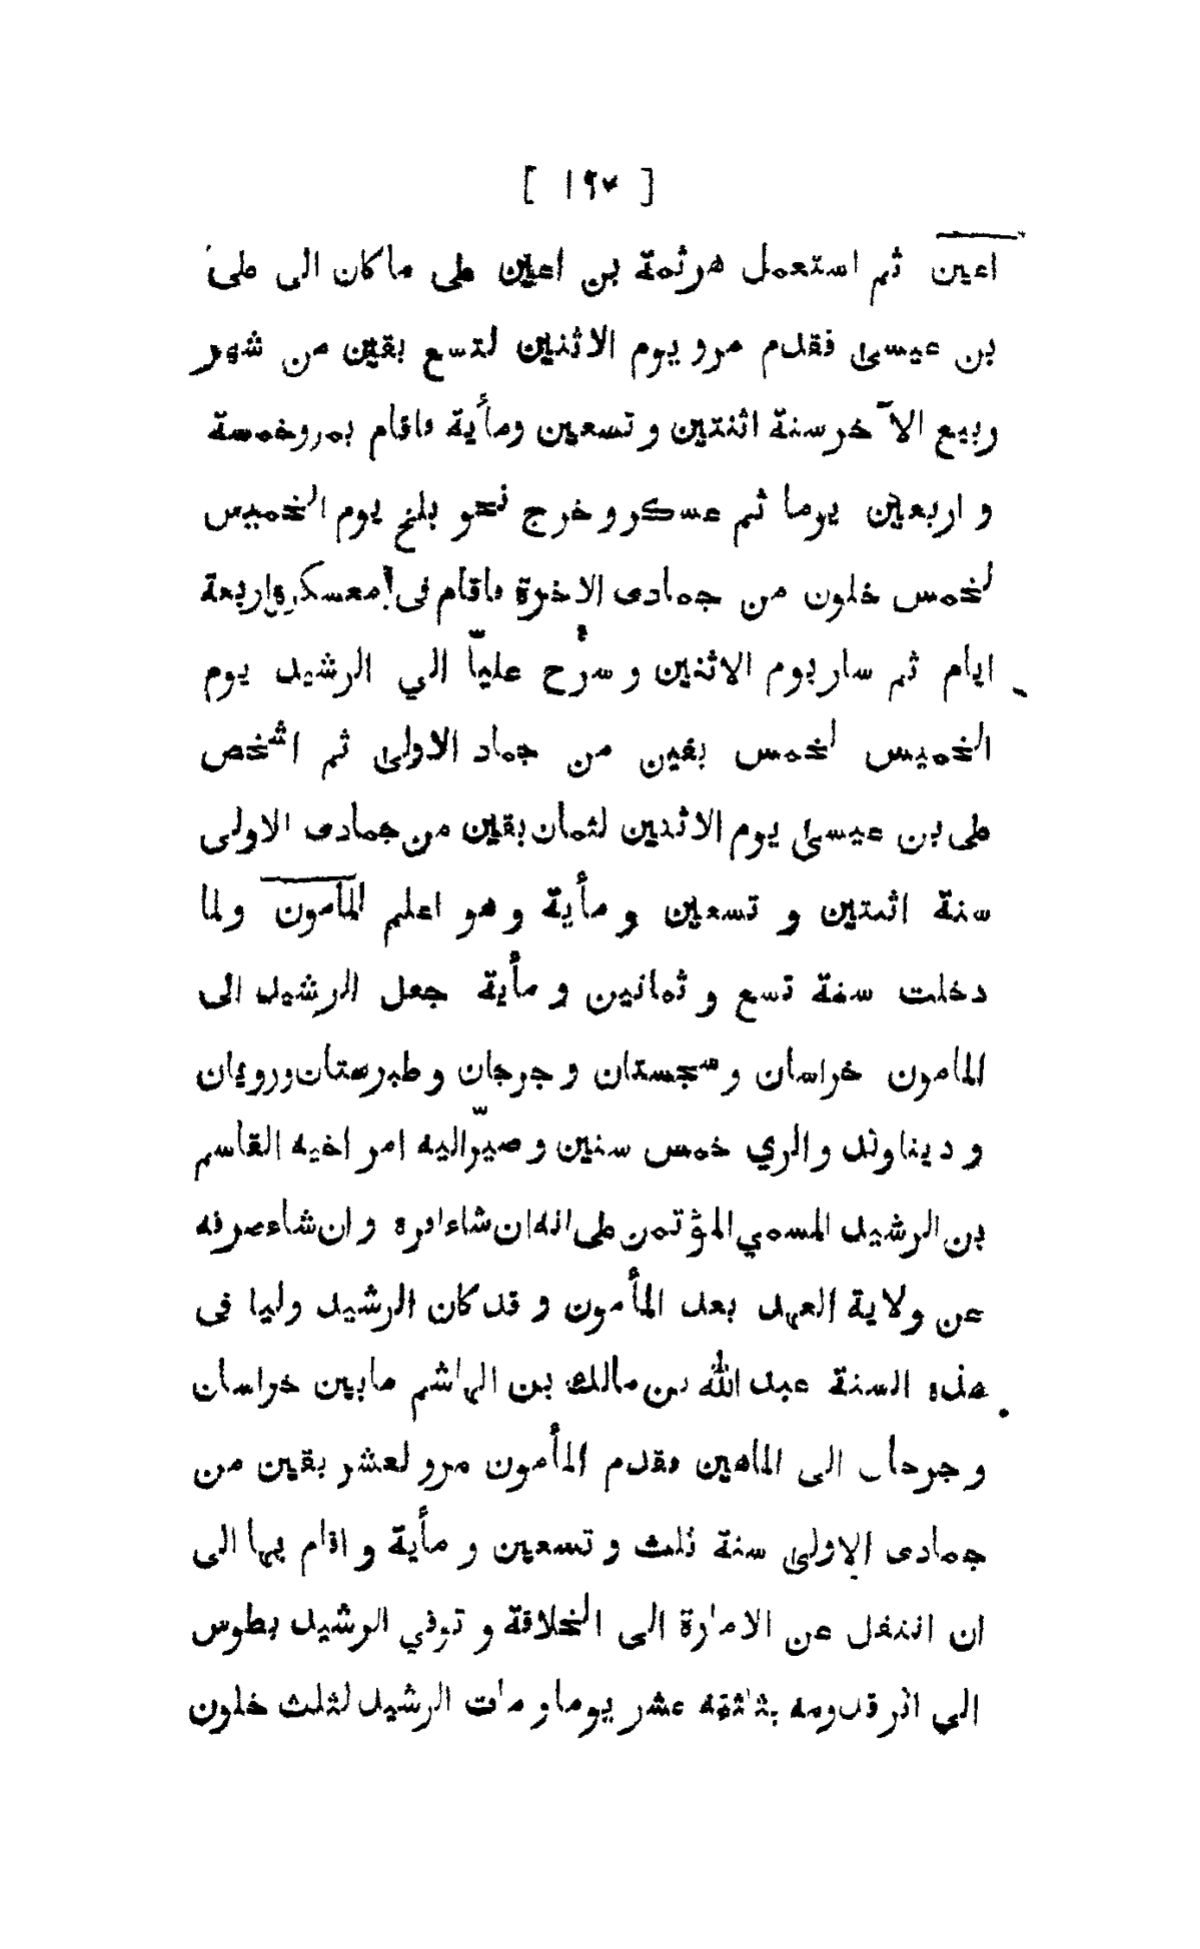 [ ١٩٧ ]
اعين ثم استعمل هرثمة بن اعين على ماكان الى على
بن عيسى فقدم مرو يوم الاثنين لتسع بقين من شهر
ربيع الآخر سنة اثنتين و تسعين ومأية فاقام بمرو خمسة
و اربعين يوما ثم عسكر و خرج نحو بلخ يوم الخميس
لخمس خلون من جمادى الاخرة فاقام فى معسكره اربعة
ايام ثم سار يوم الاثنين و سرّح عليّا الي الرشيد يوم
الخميس لخمس بقين من جماد الاولى ثم اشخص
على بن عيسى يوم الاثنين لثمان بقين من جمادى الاولى
سنة اثنتين و تسعين و مأية و هو اعلم المأمون ولما
دخلت سنة تسع و ثمانين و مأية جعل الرشيد الى
المامون خراسان و سجستان و جرجان و طبرستان ورويان
و ديناوند والري خمس سنين و صيّر اليه امر اخيه القاسم
بن الرشيد المسمي المؤتمن على انه ان شاء اقره و ان شاء صرفه
عن ولاية العهد بعد المأمون و قد كان الرشيد وليا فى
هذه السنة عبد الله بن مالك بن الهاشم مابين خراسان
و جرجان الى الماهين فقدم المأمون مرو لعشر بقين من
جمادى الاولى سنة ثلث و تسعين و مأية و اقام بها الى
ان انتقل عن الامارة الى الخلافة و توفي الرشيد بطوس
الي اثر قدومه بثلثة عشر يوما و مات الرشيد لثلث خلون